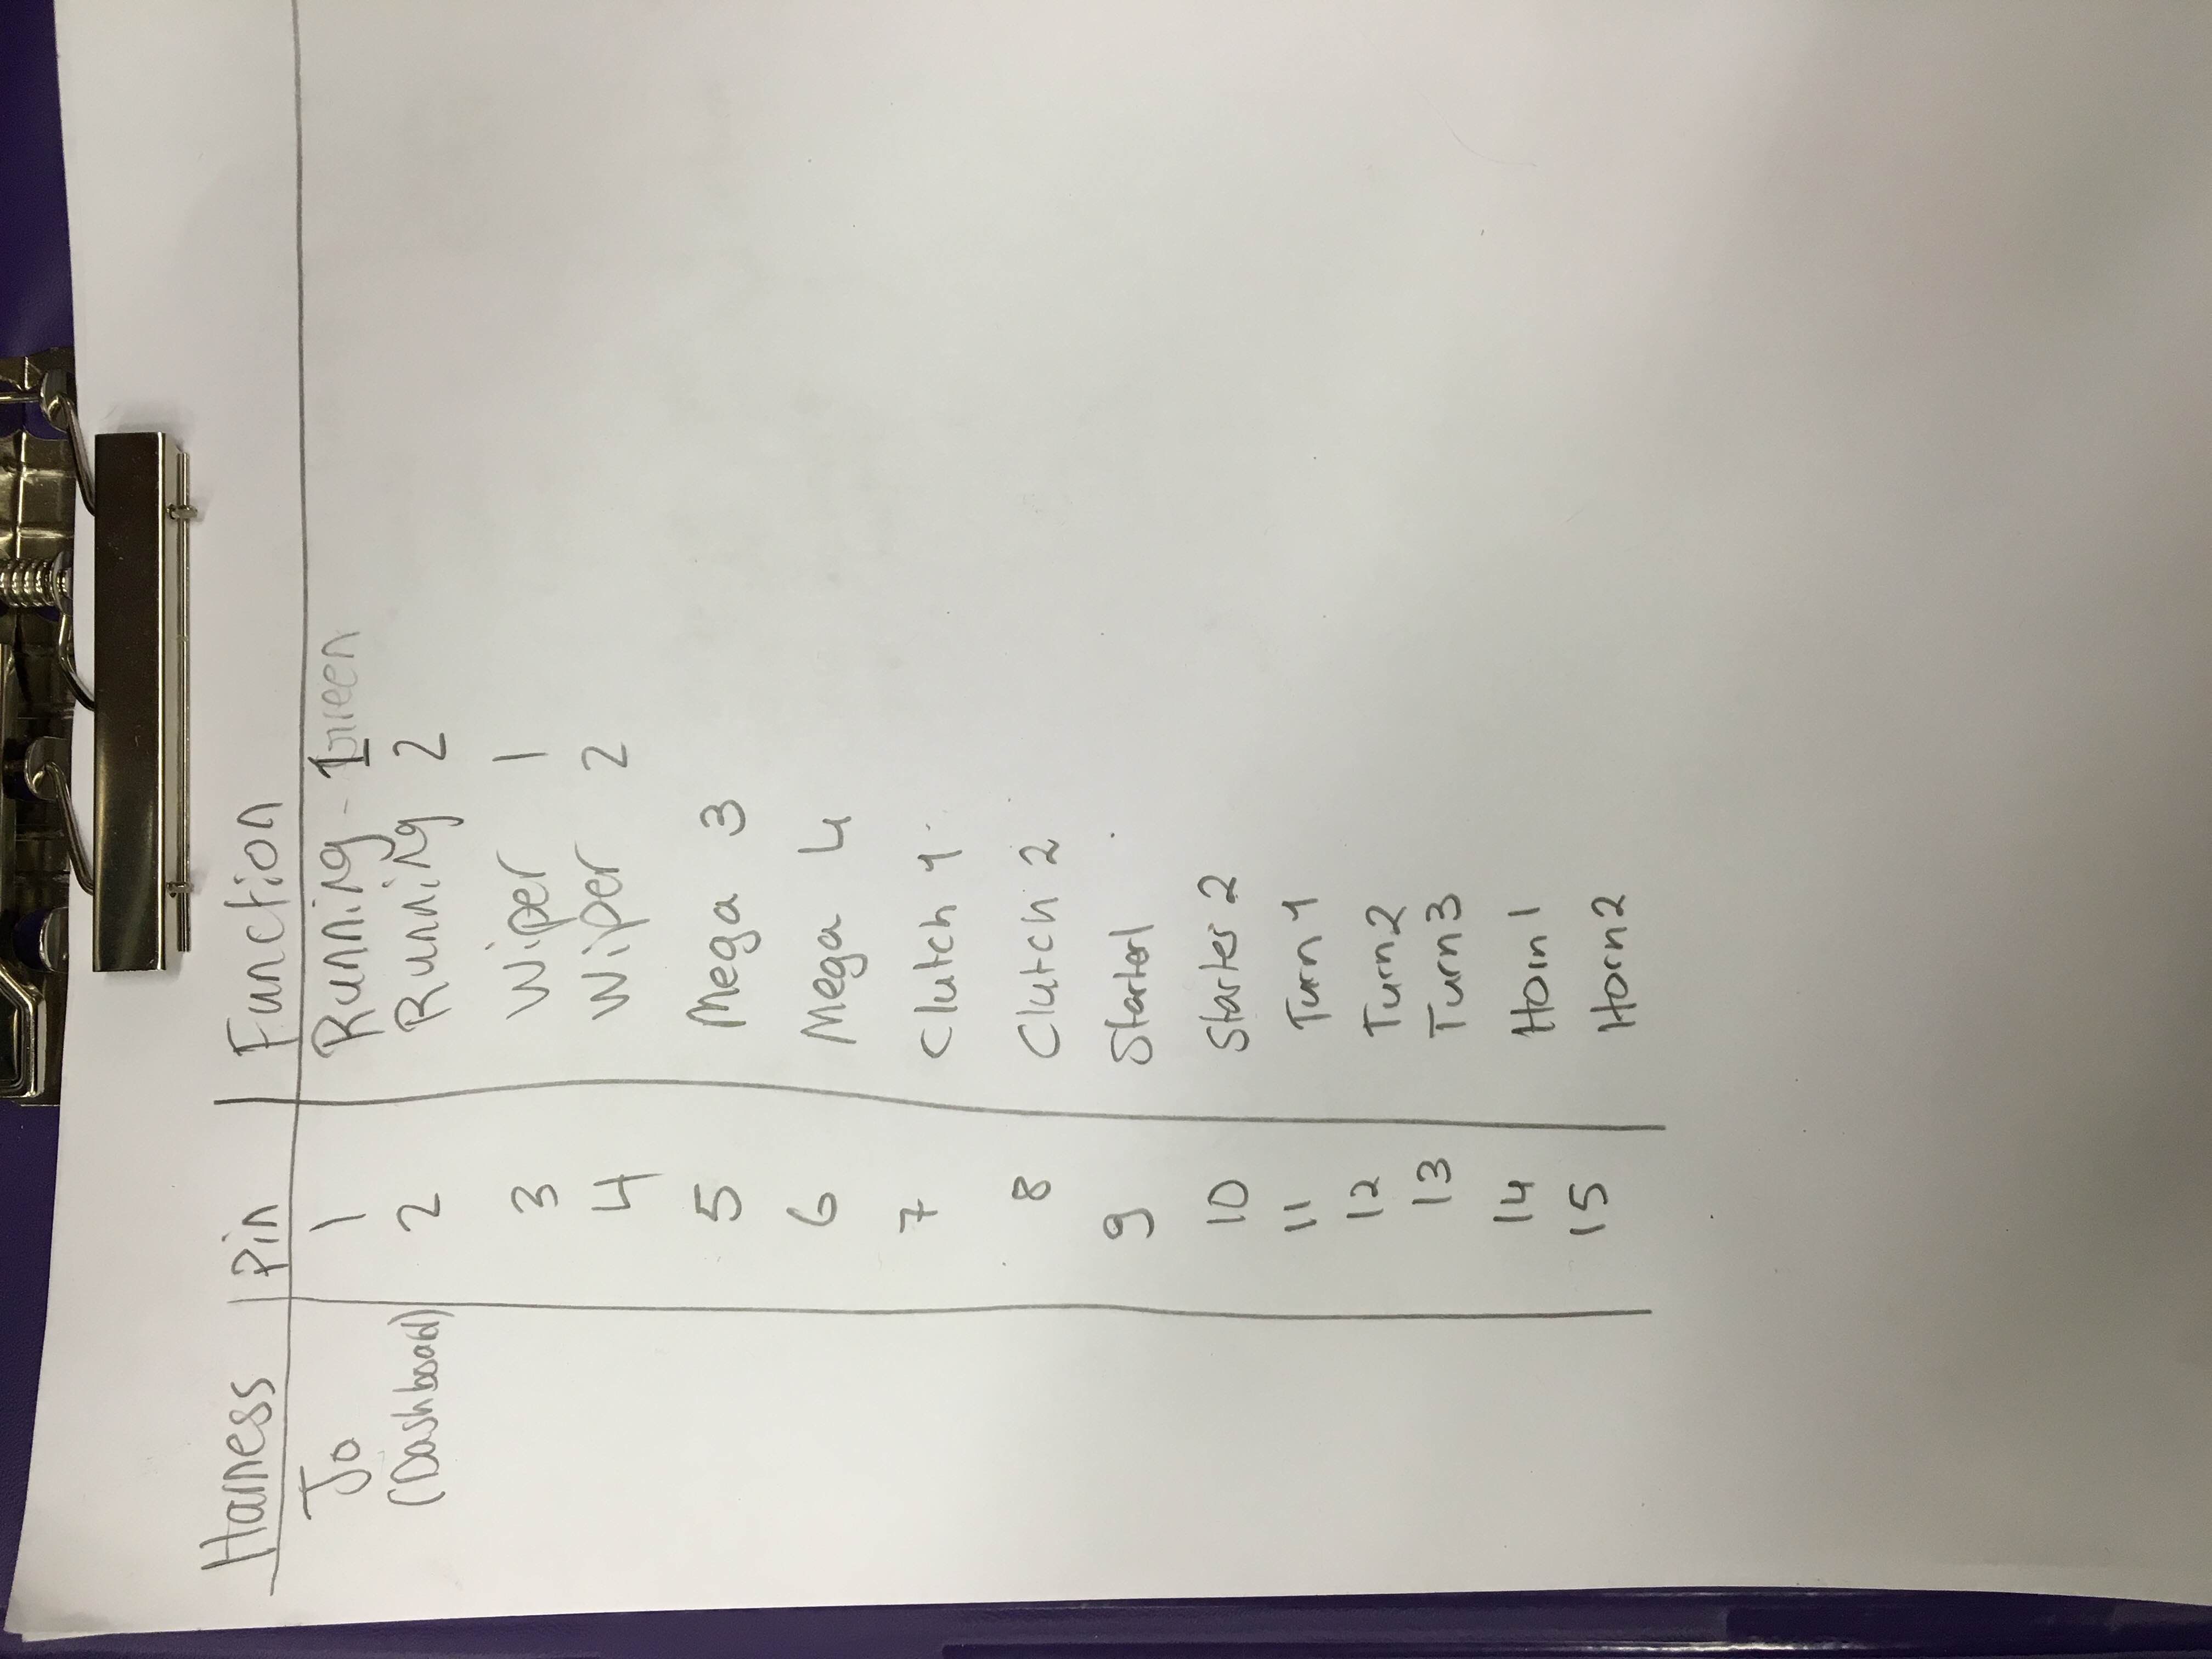 Harness Pin Function
Jo 1 Running - 1
(Dashboard) 2 Running 2
3 Wiper 1
4 Wiper 2
5 Mega 3
6 Mega 4
7 Clutch 1
8 Clutch 2
9 Starter1
10 Starter 2
11 Turn 1
12 Turn2
13 Turn3
14 Horn 1
15 Horn2